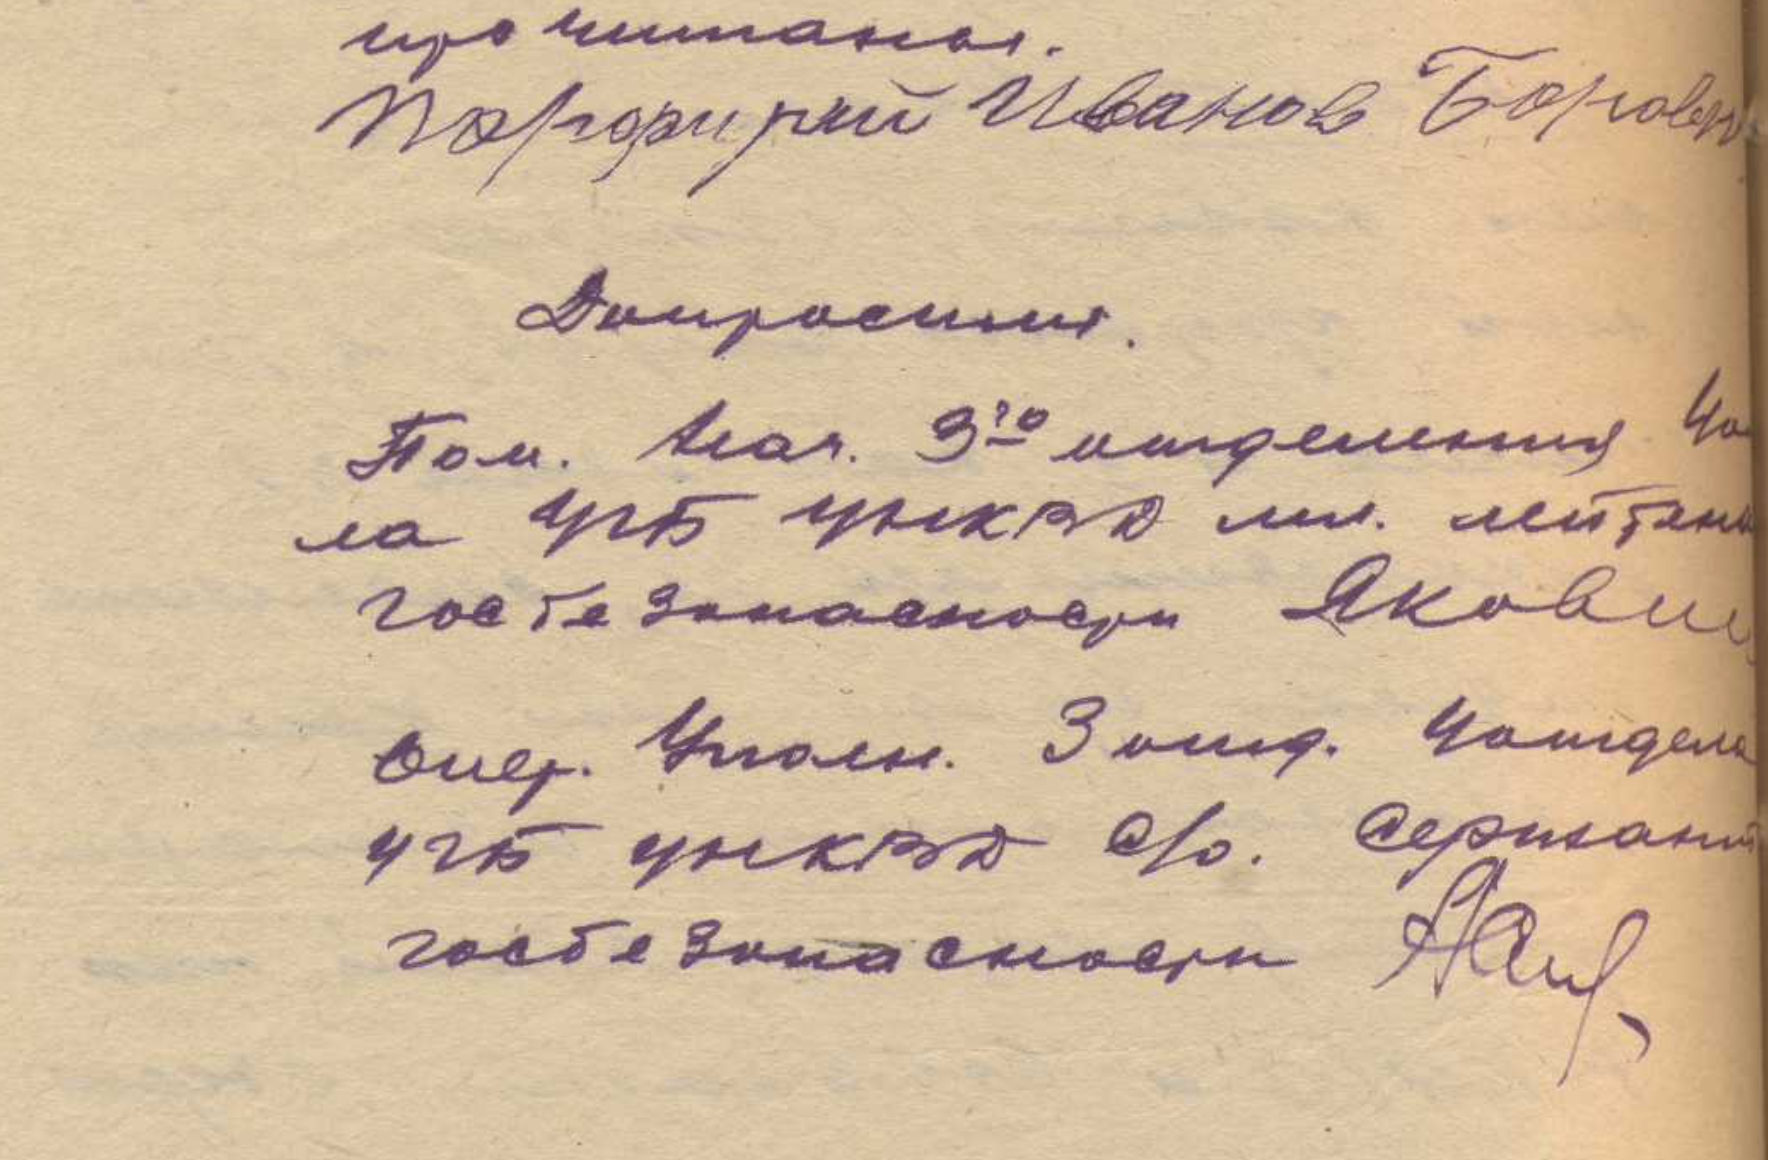 прочитаны.
Порфирий Иванов Боровен
Допросили.
Пом. Нач. 3го отделения Чо
ла УГБ УНКВД мл. лейтен
госбезопасности Якови
Опер. Уполн. 3 отд. Чотдела
УГБ УНКВД с/о. Сержант
госбезопасности